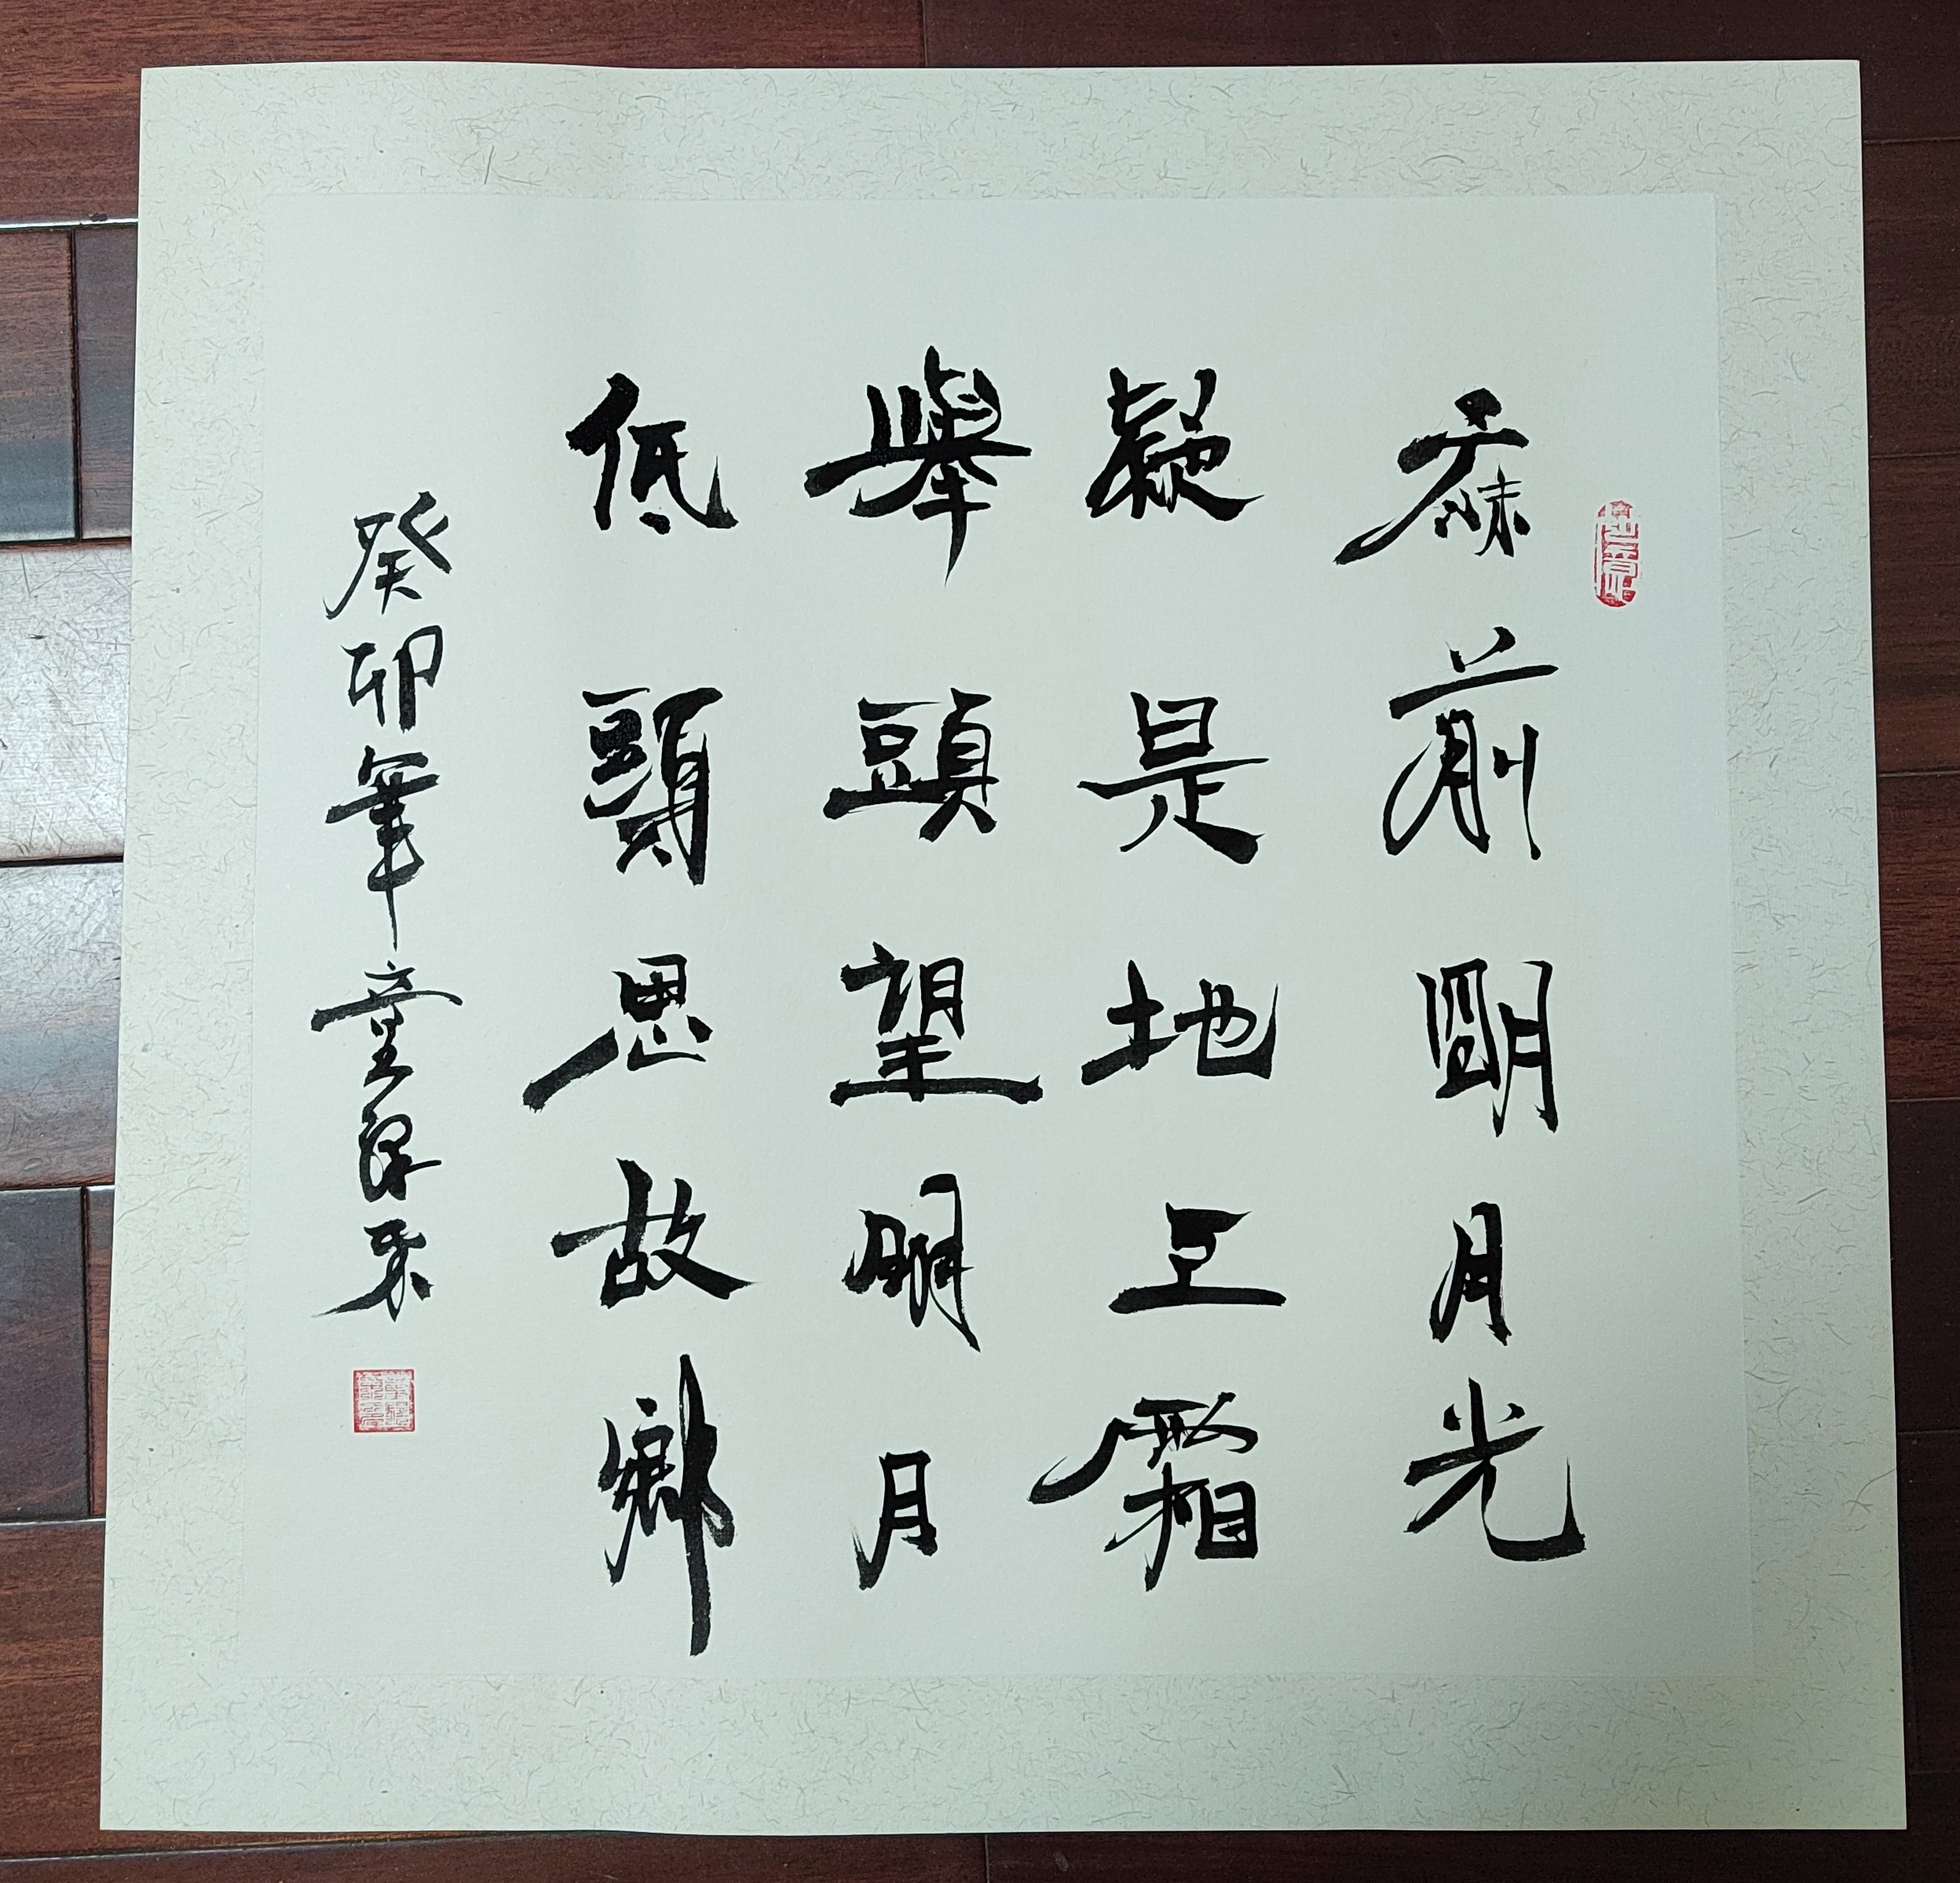 床前明月光
疑是地上霜
舉頭望明月
低頭思故鄉
癸卯年童